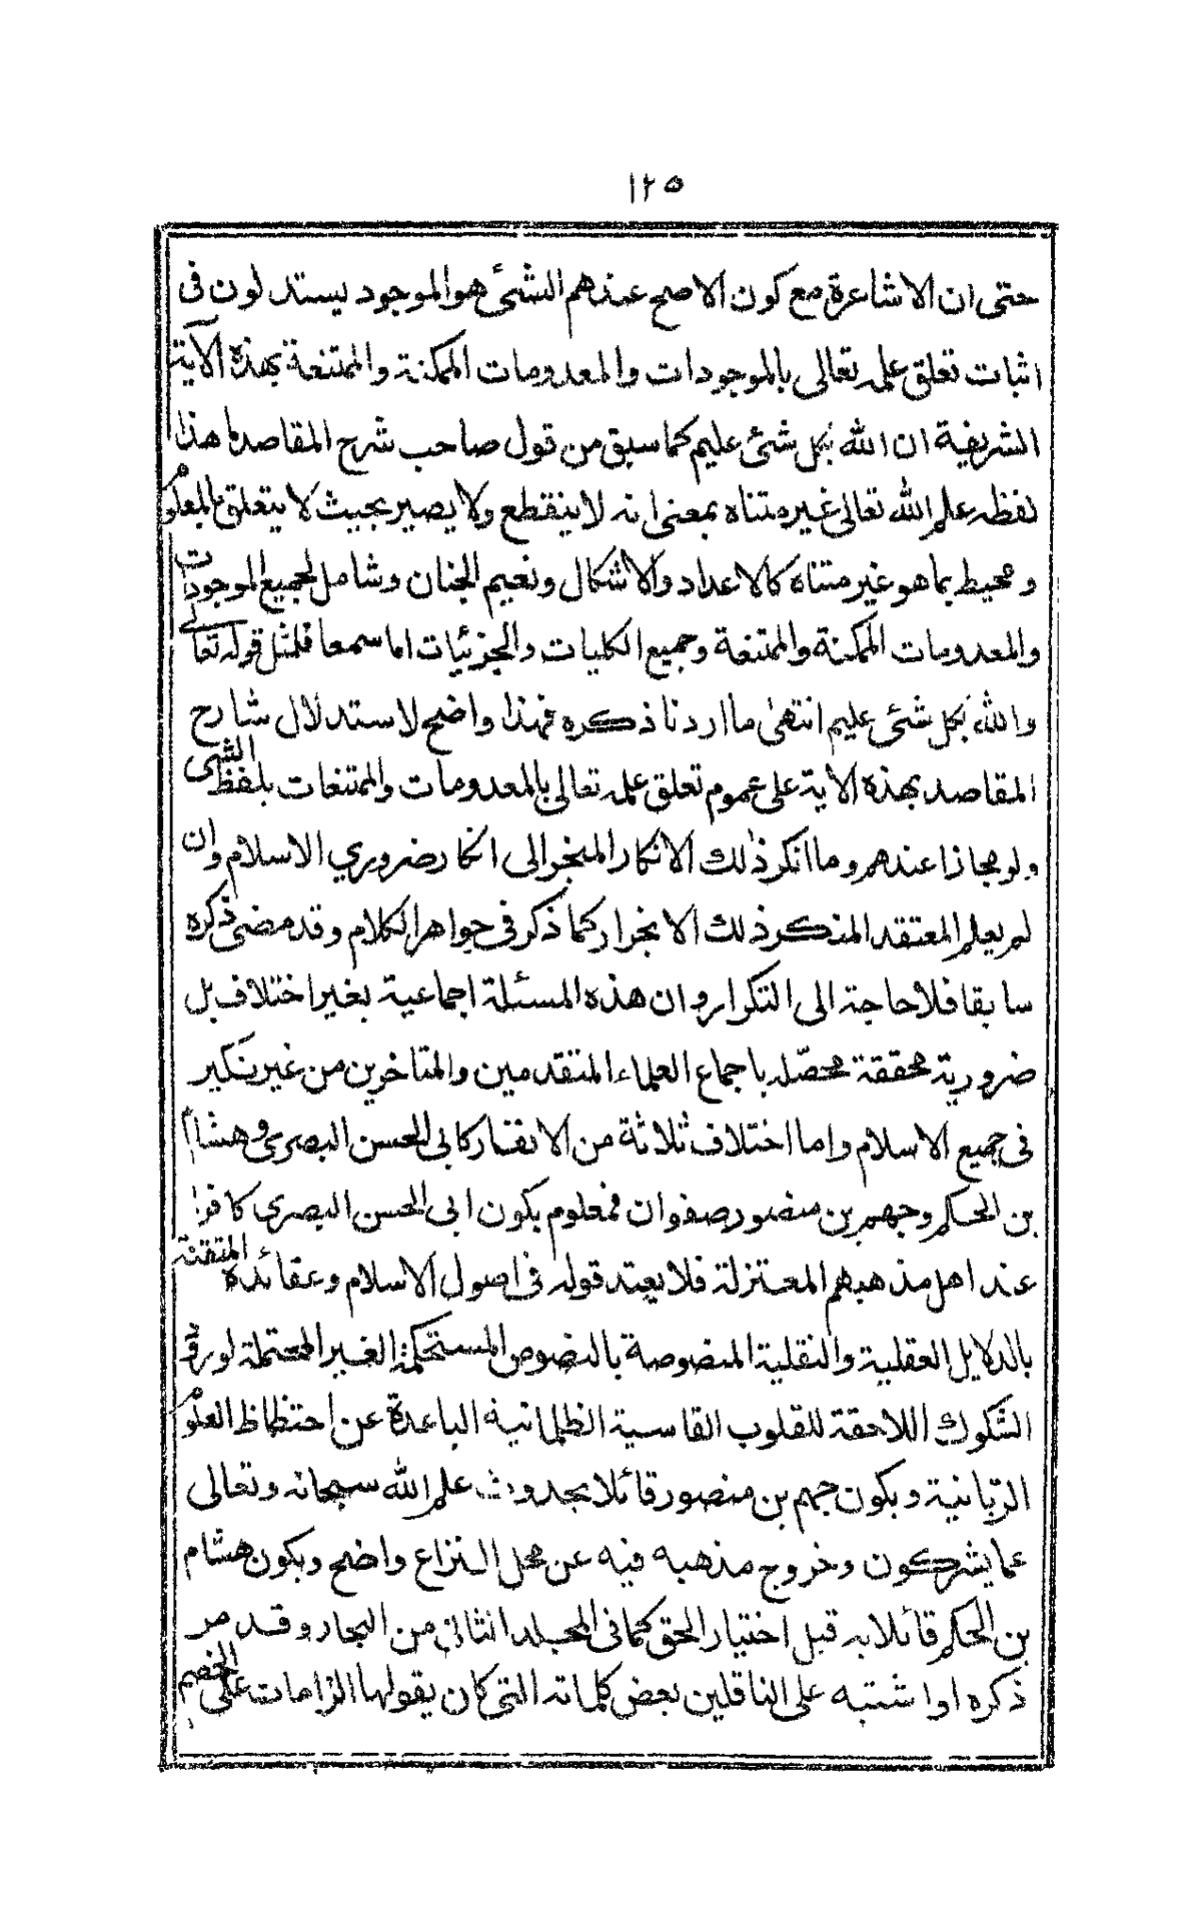 ١٢٥
حتى ان الاشاعرة مع كون الاصح عندهم الشئ هو الموجود يستدلون فى
اثبات تعلق علمه تعالى بالموجودات والمعدومات الممكنة والممتنعة بهذه الآية
الشريفة ان الله بكل شئ عليم كما سبق من قول صاحب شرح المقاصد ما هذا
لفظه علم الله تعالى غير متناه بمعنى انه لا ينقطع ولا يصير بحيث لا يتعلق بالمعلوم
ومحيط بما هو غير متناه كالاعداد والاشكال ونعيم الجنان وشامل لجميع الموجودات
والمعدومات الممكنة والممتنعة وجميع الكليات والجزئيات اما سمعا فلمثل قوله تعالى
والله بكل شئ عليم انتهى ما اردنا ذكره فهذا واضح لاستدلال شارح
المقاصد بهذه الاية على عموم تعلق علمه تعالى بالمعدومات والممتنعات بلفظ الشى
ولو مجازا عندهم وما انكر ذلك الانكار المنجر الى انكار ضروري الاسلام وان
لم يعلم المعتقد المنكر ذلك الانجرار كما ذكر فى جواهر الكلام وقد مضى ذكره
سابقا فلا حاجة الى التكرار وان هذه المسئلة اجماعية بغير اختلاف بل
ضرورية محققة محصّله باجماع العلماء المتقدمين والمتاخرين من غير نكير
فى جميع الاسلام واما اختلاف ثلاثة من الانفار كابى الحسن البصرى وهشام
بن الحكم وجهم بن منصور صفوان فمعلوم بكون ابى الحسن البصرى كافرا
عند اهل مذهبهم المعتزلة فلا يعتد قوله فى اصول الاسلام وعقائده المتقنة
بالدلايل العقلية والنقلية المنصوصة بالنصوص المستحكمة الغير المحتملة لورود
الشكوك اللاحقة للقلوب القاسية الظلمانية الباعدة عن احتظاظ العلوم
الربّانية وبكون جهم بن منصور قائلا بحدوث علم الله سبحانه وتعالى
عما يشركون وخروج مذهبه فيه عن محل النزاع واضح وبكون هشام
بن الحكم قائلا به قبل اختيار الحق كما فى المجلد الثانى من البحار وقد مر
ذكره او اشتبه على الناقلين بعض كلماته التى كان يقولها الزامات على الخصم